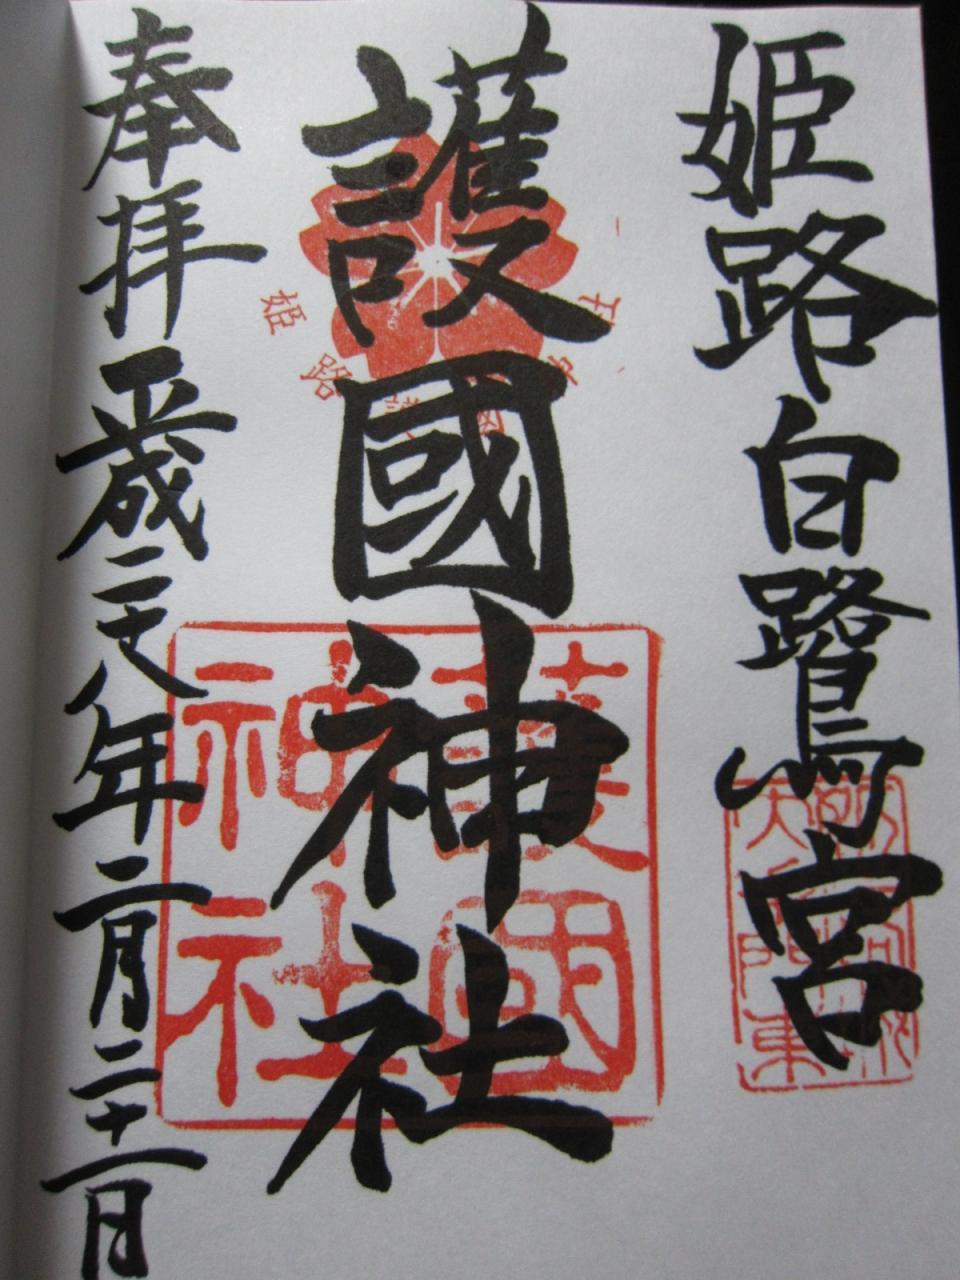 姫路白鷺宮
護國神社
奉拝 平成二十八年二月二十一日
姫路護國神社
護國
神社